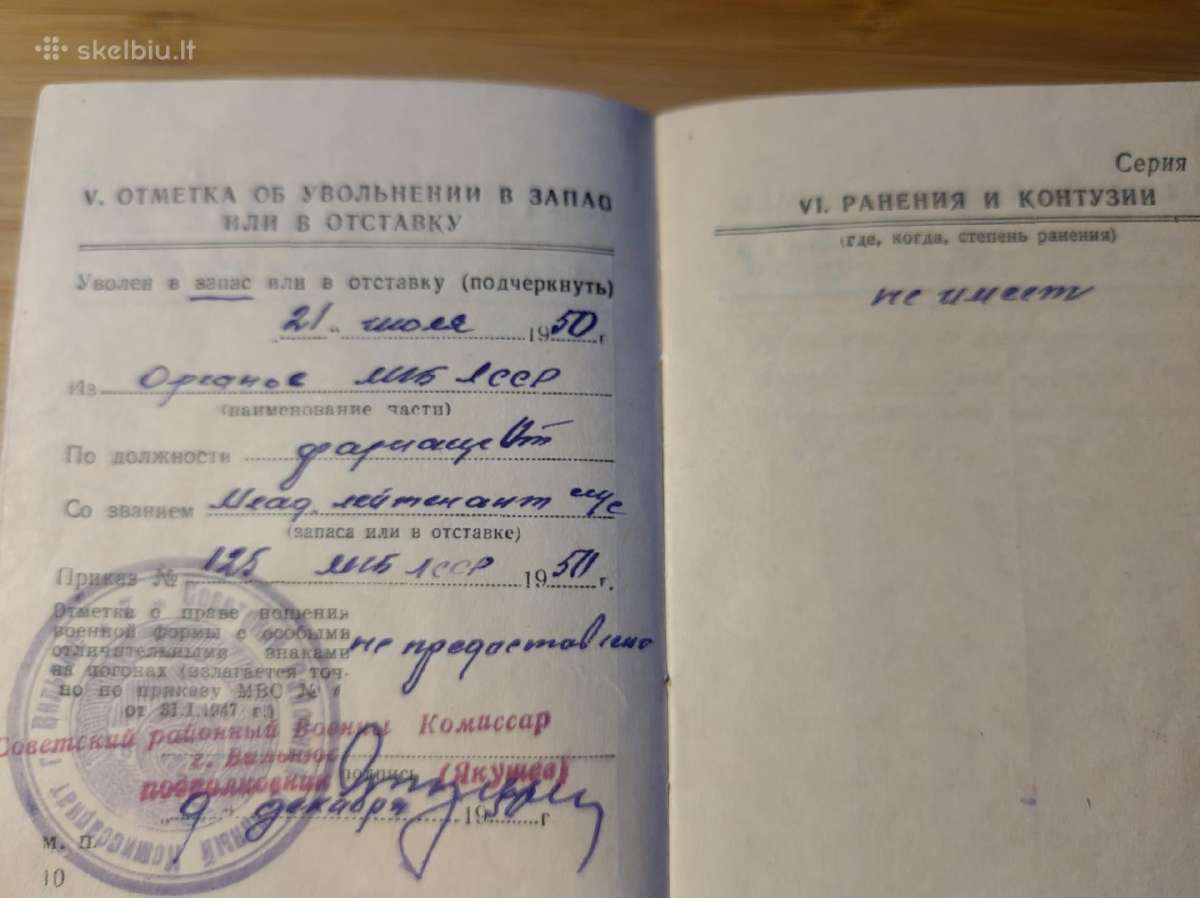 skelbiu.lt
V. ОТМЕТКА ОБ УВОЛЬНЕНИИ В ЗАПАС
ИЛИ В ОТСТАВКУ
Уволен в запас или в отставку (подчеркнуть)
21 " июля 1950 г
Из Органов МГБ ЛССР
(наименование части)
По должности фармацевт
Со званием Млад. лейтенант м/с
(запаса или в отставке)
Приказ № 125 МГБ ЛССР 1950 г.
Отметка о праве ношения
военной формы с особыми
отличительными знаками
на погонах (излагается точ-
но по приказу МВС №
от 31.I.1947 г.)
не предоставлено
Советский районный Военный Комиссар
г. Вильнюс
подполковник подпись (Якушев)
9 " декабря 1950 г
М. П.
10
Серия
VI. РАНЕНИЯ И КОНТУЗИИ
(где, когда, степень ранения)
не имеет